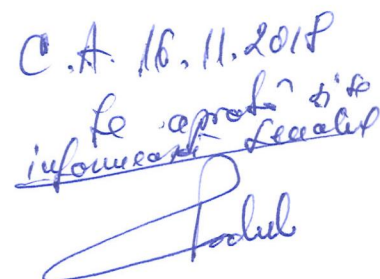 C.A. 16.11.2018
Se aprobă și se
informează Senatul